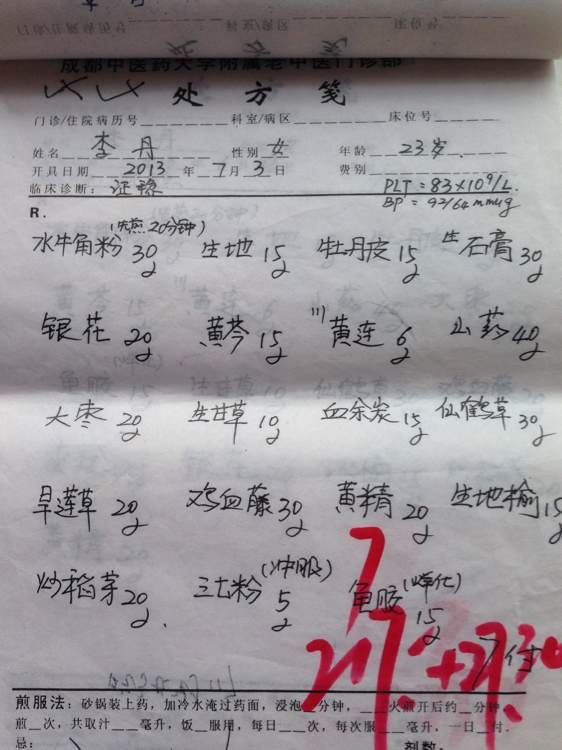 成都中医药大学附属老中医门诊部
处方笺
门诊/住院病历号 科室/病区 床位号
姓名 李丹 性别 女 年龄 23岁
开具日期 2013 年 7 月 3 日 费别
临床诊断: 证稳 PLT = 83×10⁹/L.
BP = 92/64 mmHg
R.
水牛角粉 30g (先煎20分钟) 生地 15g 牡丹皮 15g 生石膏 30g
银花 20g 黄芩 15g 川黄连 6g 山药 40g
大枣 20g 生甘草 10g 血余炭 15g 仙鹤草 30g
旱莲草 20g 鸡血藤 30g 黄精 20g 生地榆 15g
炒稻芽 20g. 三七粉 5g (冲服) 龟胶 15g (烊化)
7付
煎服法: 砂锅装上药，加冷水淹过药面，浸泡__分钟，___火煎开后约__分钟，
煎__次，共取汁___毫升，饭__服用，每日___次，每次服___毫升，一日__付.
忌:
剂数: